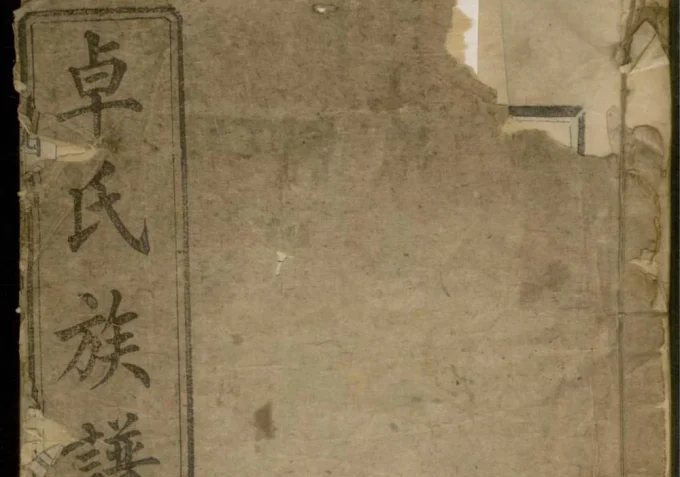 卓氏族譜